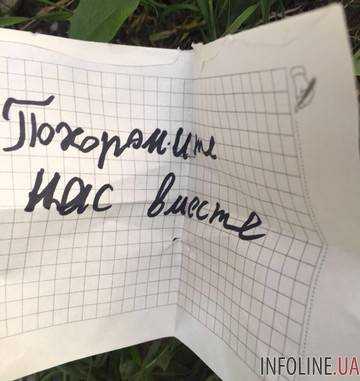 Похороните
нас вместе
INFOLINE.UA